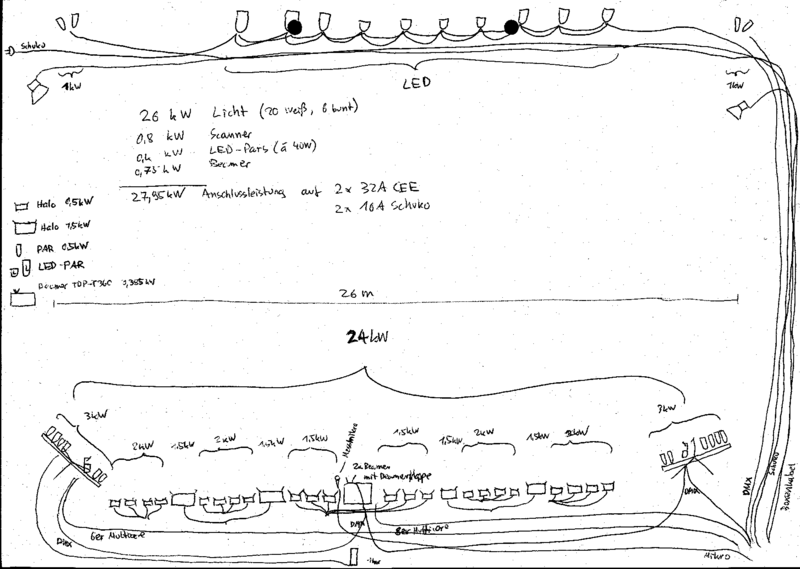 Schuko
1kW
1kW
LED
26 kW Licht (20 weiß, 6 bunt)
0,8 kW Scanner
0,4 kW LED-Pars (á 40W)
0,75 kW Beamer
27,95kW Anschlussleistung auf 2x 32A CEE
2x 16A Schuko
Halo 0,5kW
Halo 1,5kW
PAR 0,5kW
LED-PAR
Beamer TDP-T360 0,385kW
26 m
24kW
3kW
2kW
1,5kW
2kW
1,5kW
1,5kW
1,5kW
1,5kW
2kW
1,5kW
2kW
3kW
2x Beamer
mit Beamerklappe
DMX
6er Multicore
DMX
6er Multicore
DMX
DMX
Schuko
Mikro